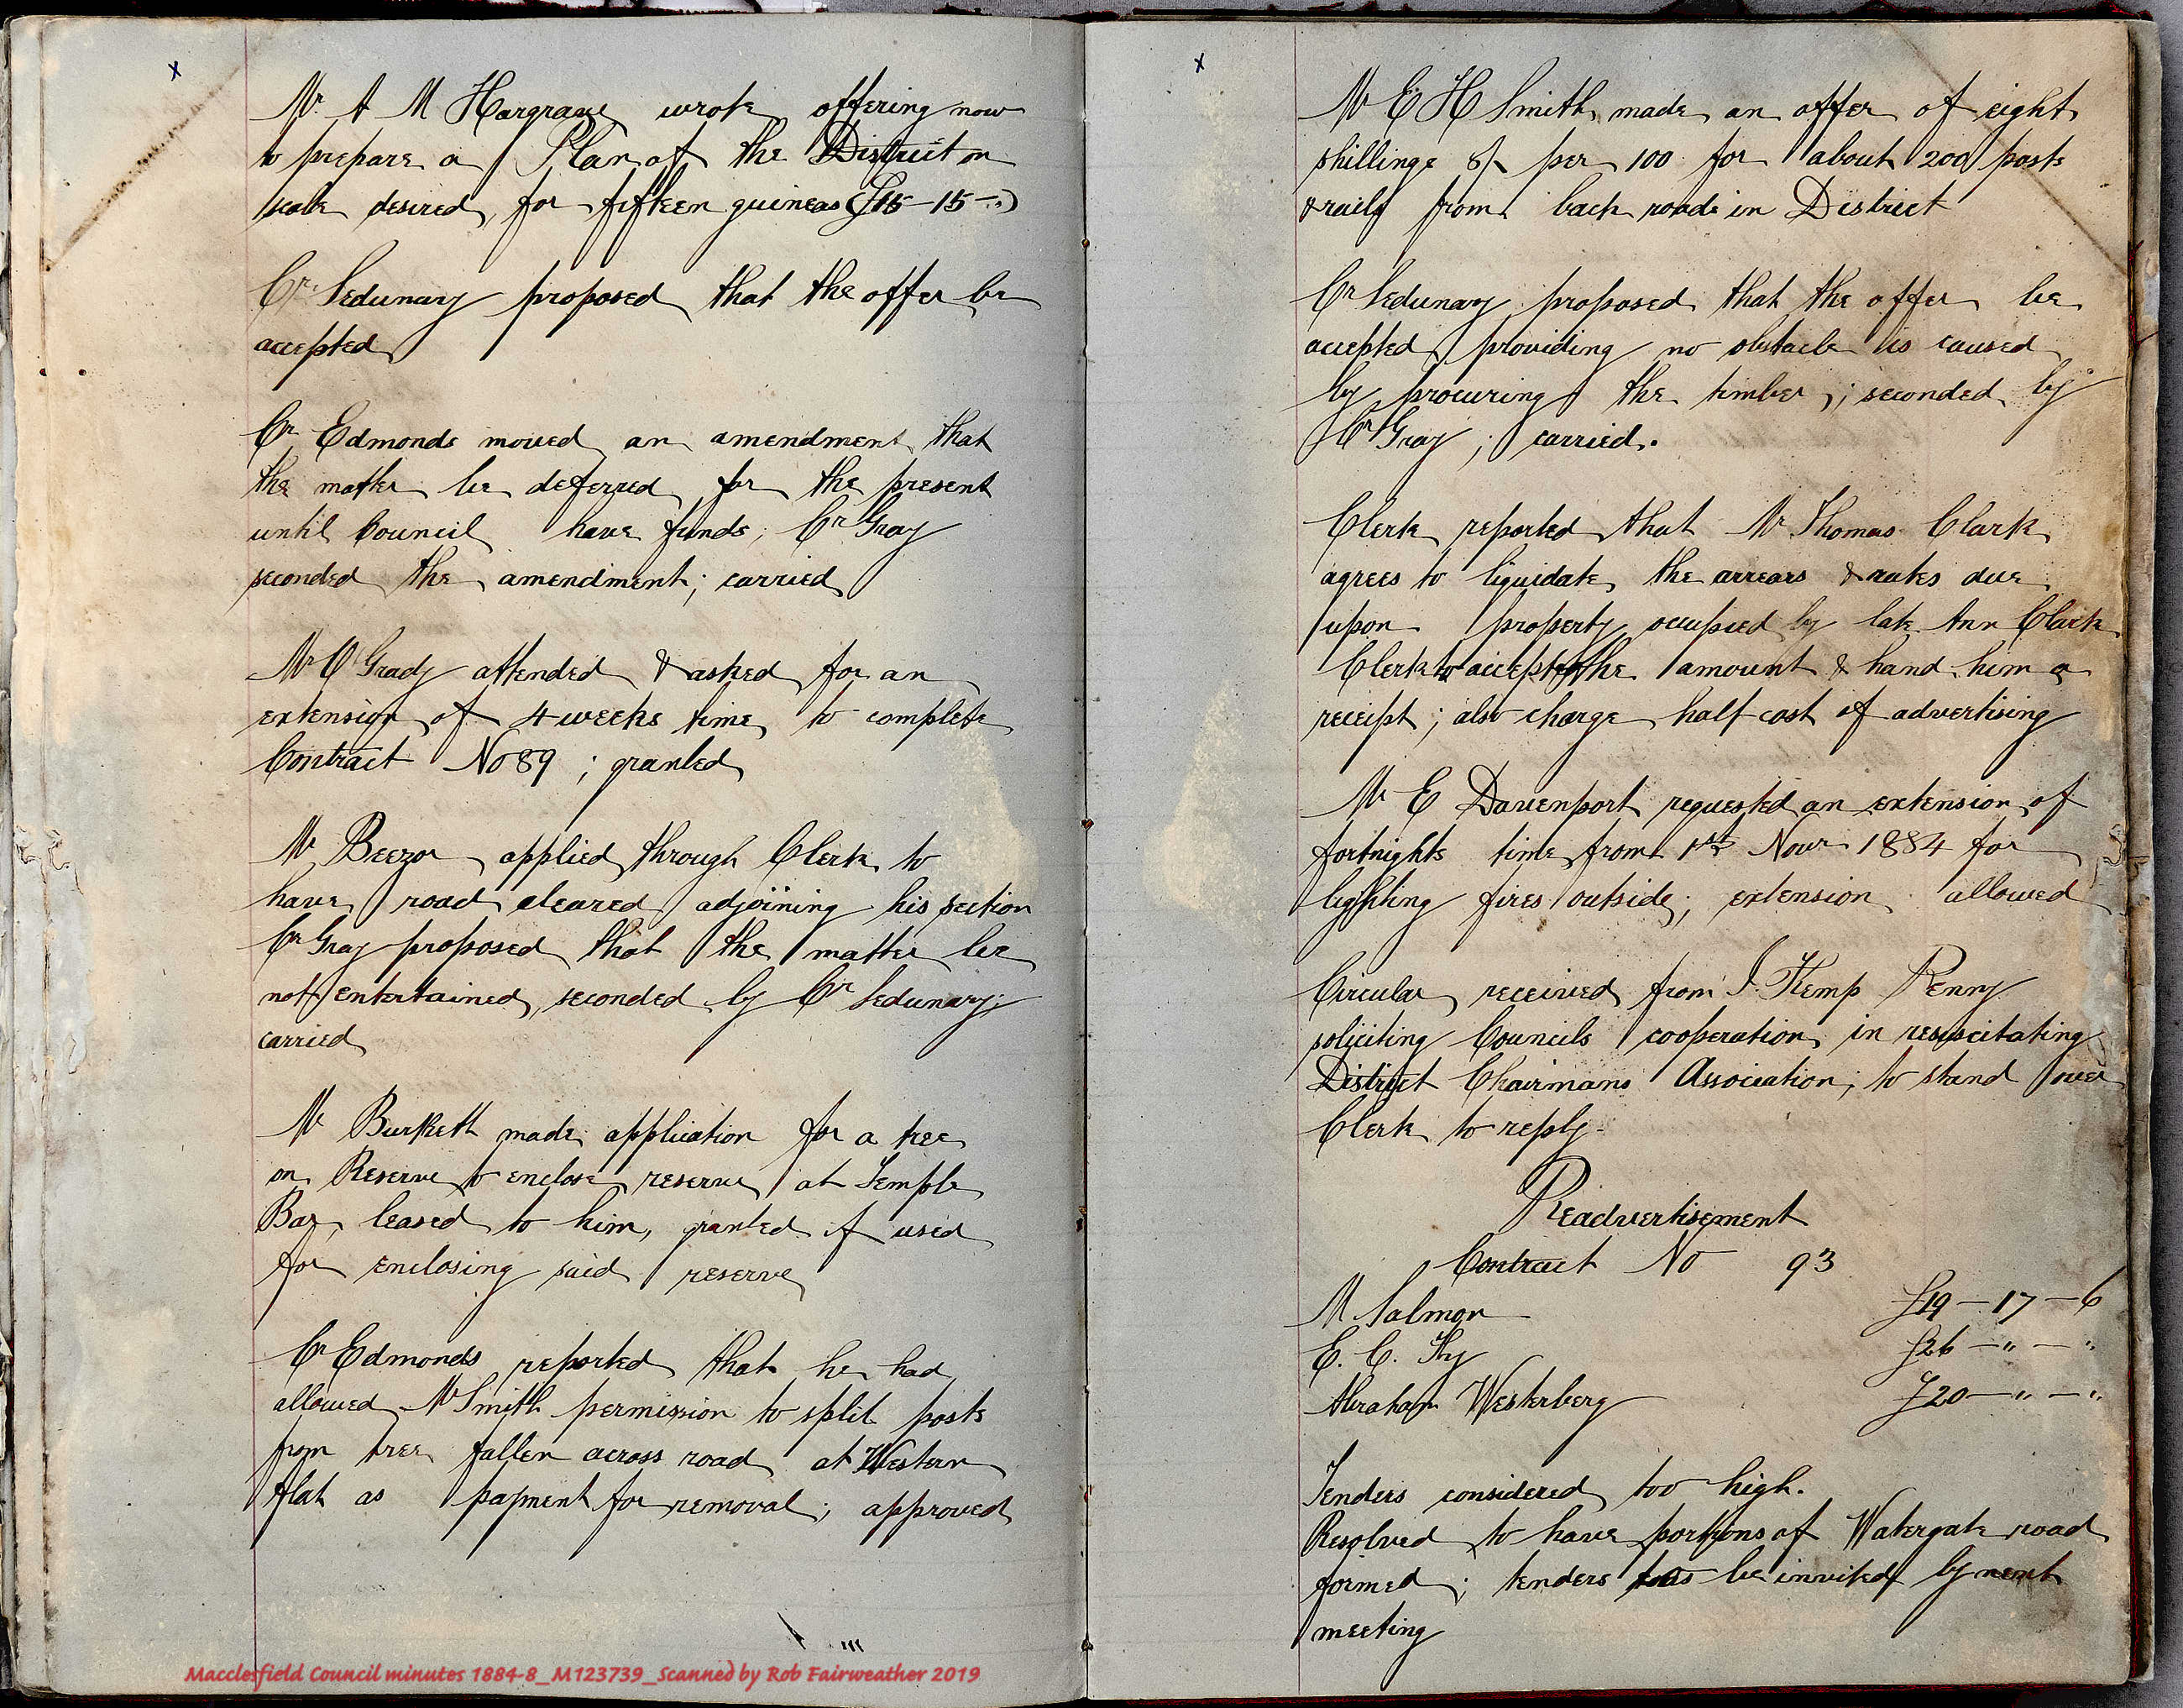 x
Mr. A M Hargrave wrote offering now
to prepare a Plan of the District on
scale desired, for fifteen guineas (£15-15-")
Cr. Sedunary proposed that the offer be
accepted
Cr Edmonds moved an amendment that
the matter be deferred for the present
until Council have funds; Cr Gray
seconded the amendment; carried
Mr O'Grady attended & asked for an
extension of 4 weeks time to complete
Contract No 89; granted
Mr Beezor applied through Clerk to
have road cleared adjoining his section
Cr Gray proposed that the matter be
not entertained, seconded by Cr Sedunary;
carried
Mr Burkett made application for a tree
on Reserve to enclose reserve at Temple
Bar, leased to him, granted if used
for enclosing said reserve
Cr Edmonds reported that he had
allowed Mr Smith permission to split posts
from tree fallen across road at Western
flat as payment for removal; approved
Macclesfield Council minutes 1884-8_M123739_Scanned by Rob Fairweather 2019
x
Mr E H Smith made an offer of eight
shillings 8/- per 100 for about 200 posts
& rails from back roads in District
Cr Sedunary proposed that the offer be
accepted providing no obstacle is caused
by procuring the timber; seconded by
Cr Gray; carried.
Clerk reported that Mr Thomas Clark
agrees to liquidate the arrears & rates due
upon property occupied by late Ann Clark
Clerk to accept the amount & hand him a
receipt; also charge half cost of advertising
Mr E Davenport requested an extension of
fortnights time from 1st Novr 1884 for
lighting fires outside; extension allowed
Circular received from J. Kemp Penny
soliciting Councils cooperation in resuscitating
District Chairmans Association; to stand over
Clerk to reply-
Readvertisement
Contract No 93
M Salmon £19-17-6
E. C. Thy £26-"-"
Abraham Westerberg £20-"-"
Tenders considered too high.
Resolved to have portions of Watergate road
formed; tenders to be invited by next
meeting